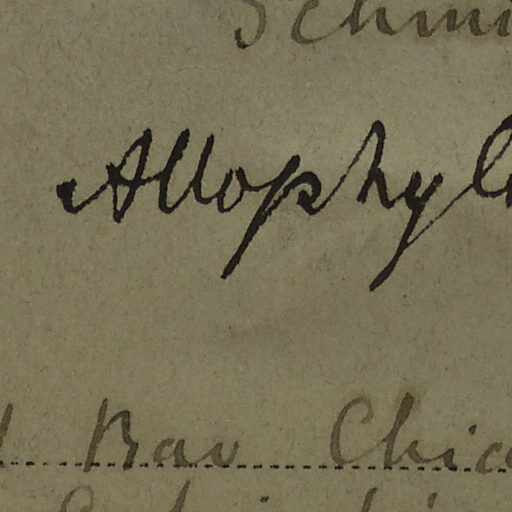 Schmi
Allophyl
Bav Chic